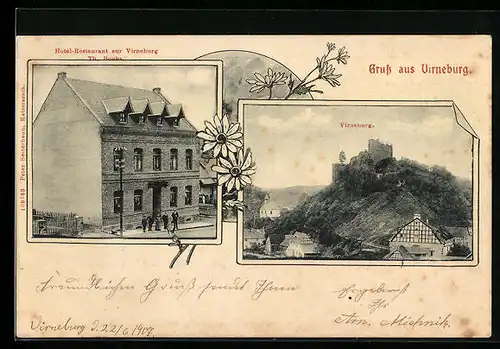 Hotel-Restaurant zur Virneburg
Gruß aus Virneburg.
Virneburg.
Peter Setterbaum, Kaisersesch.
Freundlichen Gruß sendet Ihnen
Ergebenst
Ihr
Virneburg d. 22/6 1907